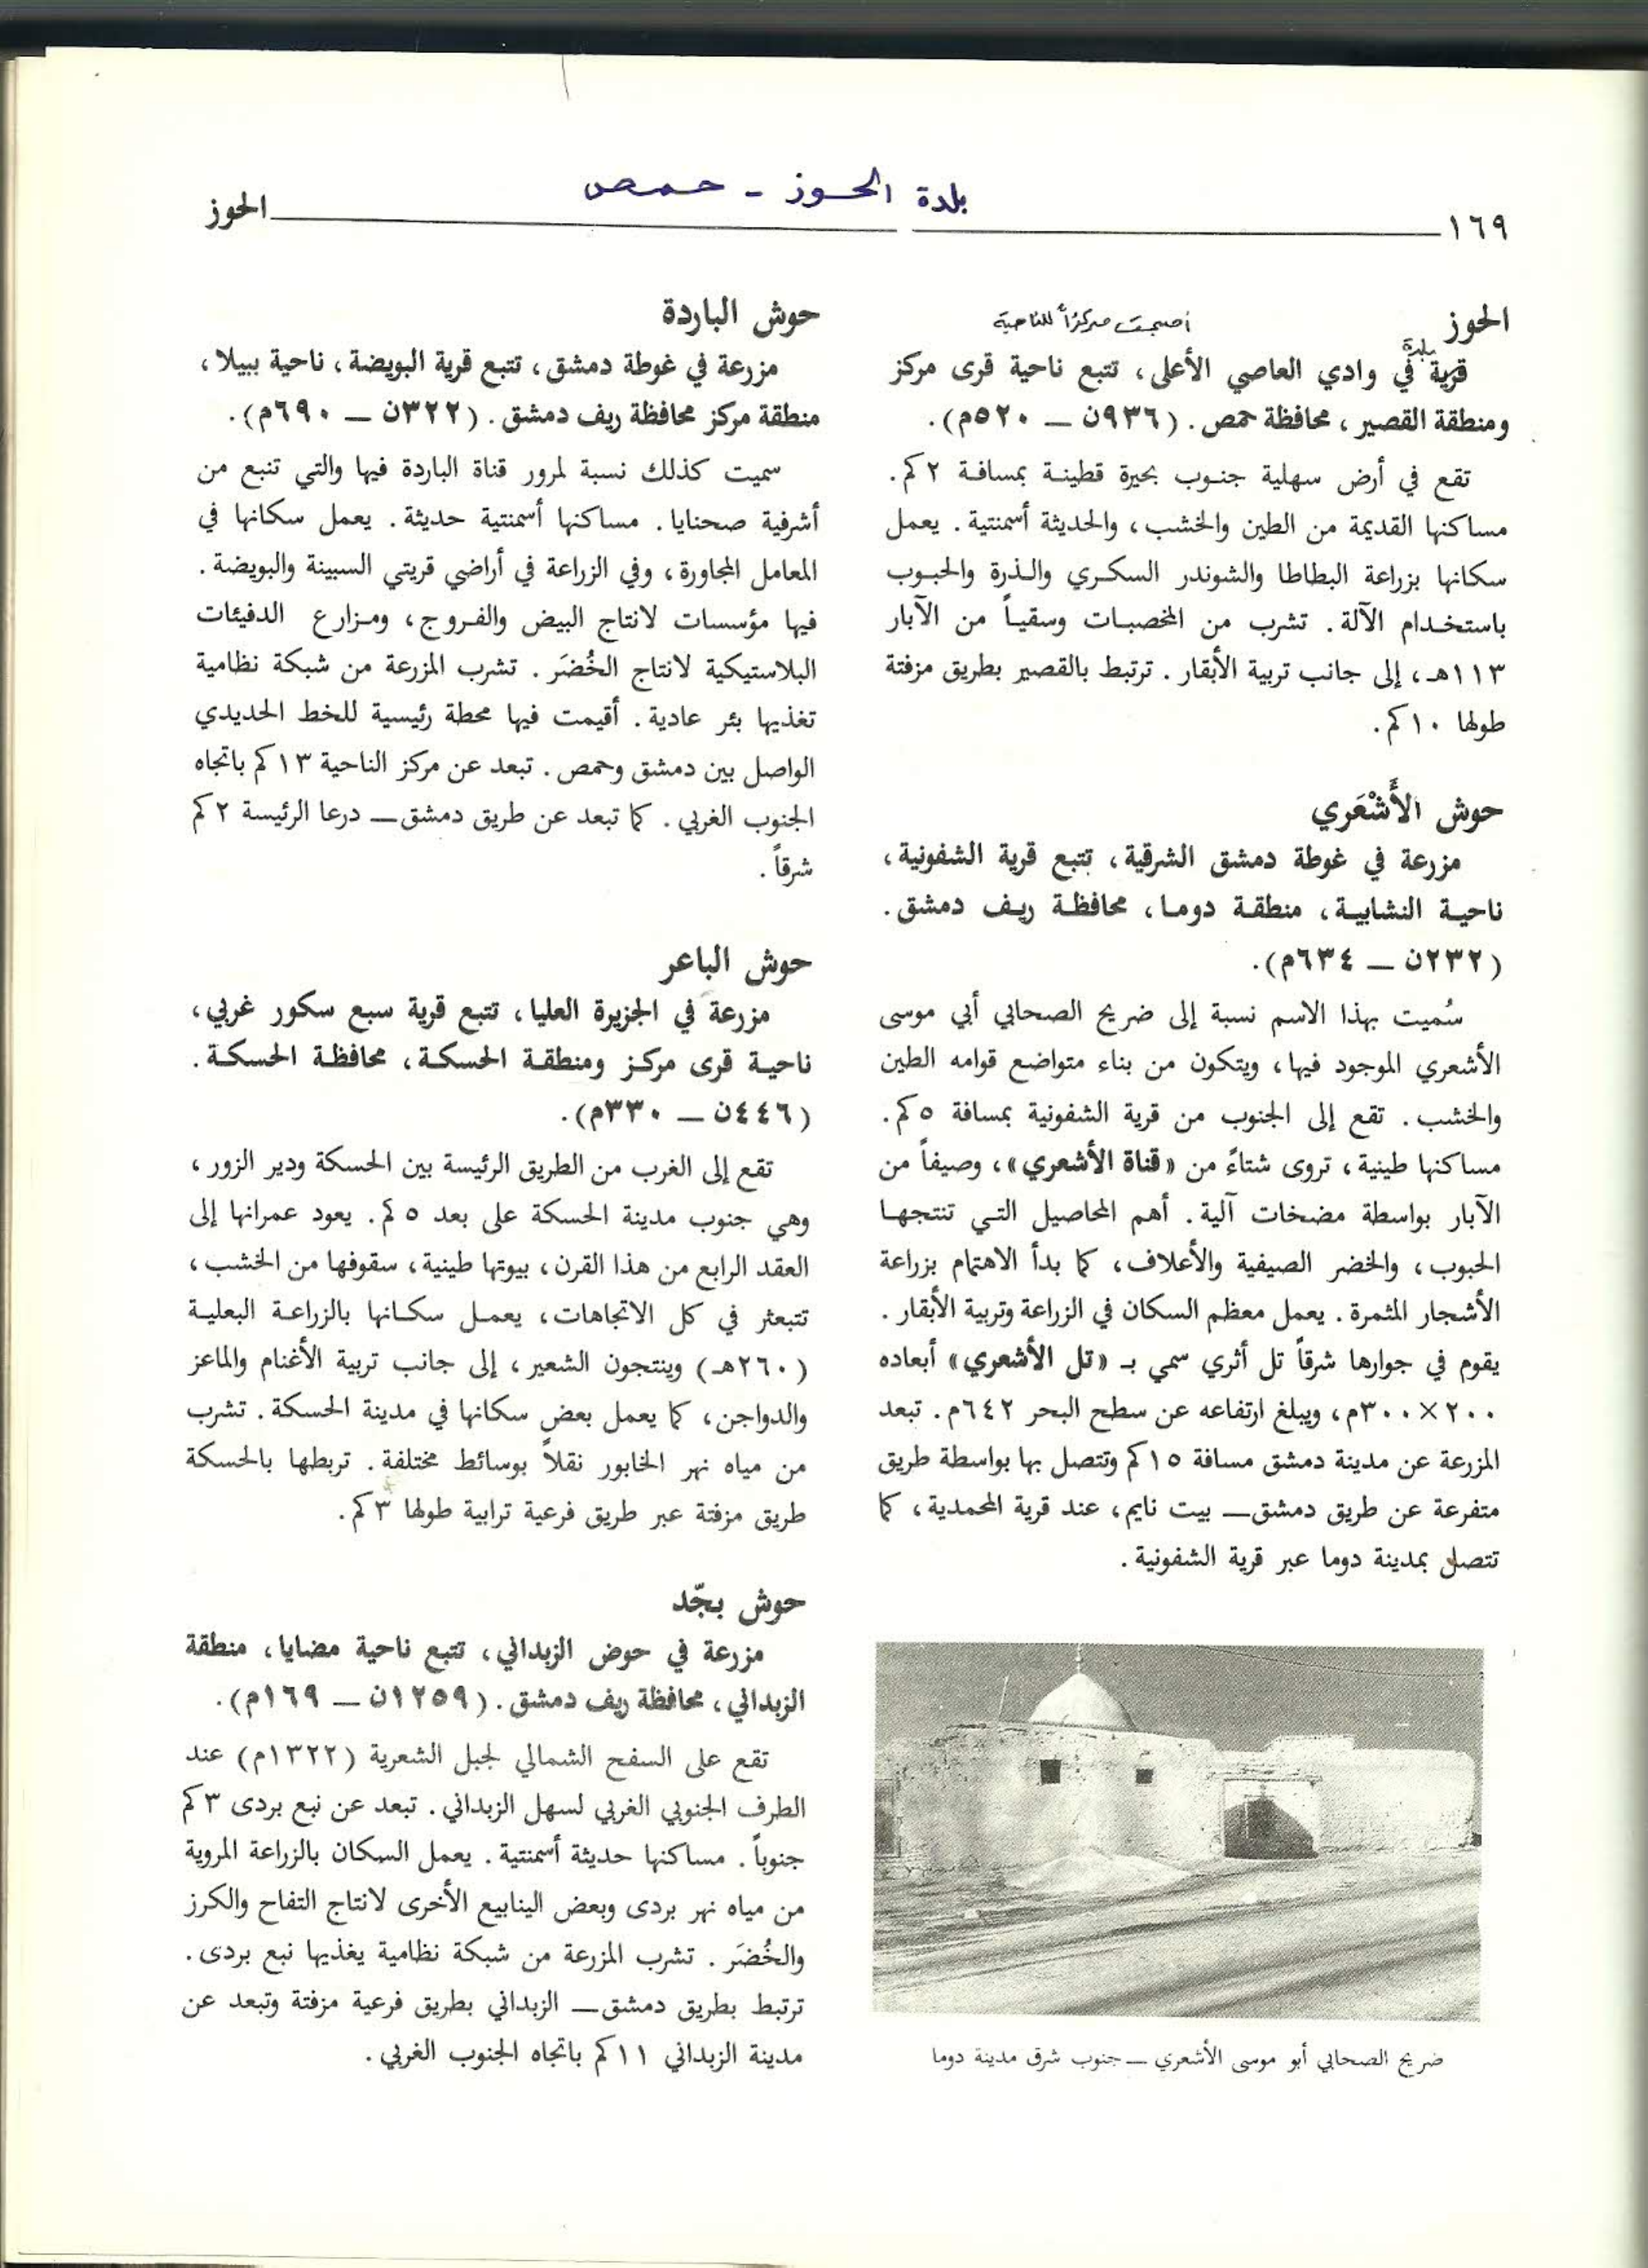 بلدة الحوز - حمص
١٦٩
الحوز
الحوز
أصبحت مركزاً للناحية
بلدة
قرية في وادي العاصي الأعلى، تتبع ناحية قرى مركز
ومنطقة القصير، محافظة حمص. (٩٣٦ن — ٥٢٠م).
تقع في أرض سهلية جنوب بحيرة قطينة بمسافة ٢كم.
مساكنها القديمة من الطين والخشب، والحديثة أسمنتية. يعمل
سكانها بزراعة البطاطا والشوندر السكري والذرة والحبوب
باستخدام الآلة. تشرب من المخصبات وسقياً من الآبار
١١٣هـ، إلى جانب تربية الأبقار. ترتبط بالقصير بطريق مزفتة
طولها ١٠كم.
حوش الأَشْعَري
مزرعة في غوطة دمشق الشرقية، تتبع قرية الشفونية،
ناحية النشابية، منطقة دوما، محافظة ريف دمشق.
(٢٣٢ن — ٦٣٤م).
سُميت بهذا الاسم نسبة إلى ضريح الصحابي أبي موسى
الأشعري الموجود فيها، ويتكون من بناء متواضع قوامه الطين
والخشب. تقع إلى الجنوب من قرية الشفونية بمسافة ٥كم.
مساكنها طينية، تروى شتاءً من «قناة الأشعري»، وصيفاً من
الآبار بواسطة مضخات آلية. أهم المحاصيل التي تنتجها
الحبوب، والخضر الصيفية والأعلاف، كما بدأ الاهتمام بزراعة
الأشجار المثمرة. يعمل معظم السكان في الزراعة وتربية الأبقار.
يقوم في جوارها شرقاً تل أثري سمي بـ «تل الأشعري» أبعاده
٢٠٠×٣٠٠م، ويبلغ ارتفاعه عن سطح البحر ٦٤٢م. تبعد
المزرعة عن مدينة دمشق مسافة ١٥كم وتتصل بها بواسطة طريق
متفرعة عن طريق دمشق— بيت نايم، عند قرية المحمدية، كما
تتصل بمدينة دوما عبر قرية الشفونية.
ضريح الصحابي أبو موسى الأشعري — جنوب شرق مدينة دوما
حوش الباردة
مزرعة في غوطة دمشق، تتبع قرية البويضة، ناحية ببيلا،
منطقة مركز محافظة ريف دمشق. (٣٢٢ن — ٦٩٠م).
سميت كذلك نسبة لمرور قناة الباردة فيها والتي تنبع من
أشرفية صحنايا. مساكنها أسمنتية حديثة. يعمل سكانها في
المعامل المجاورة، وفي الزراعة في أراضي قريتي السبينة والبويضة.
فيها مؤسسات لانتاج البيض والفروج، ومزارع الدفيئات
البلاستيكية لانتاج الخُضَر. تشرب المزرعة من شبكة نظامية
تغذيها بئر عادية. أقيمت فيها محطة رئيسية للخط الحديدي
الواصل بين دمشق وحمص. تبعد عن مركز الناحية ١٣كم باتجاه
الجنوب الغربي. كما تبعد عن طريق دمشق— درعا الرئيسة ٢كم
شرقاً.
حوش الباعر
مزرعة في الجزيرة العليا، تتبع قرية سبع سكور غربي،
ناحية قرى مركز ومنطقة الحسكة، محافظة الحسكة.
(٤٤٦ن — ٣٣٠م).
تقع إلى الغرب من الطريق الرئيسة بين الحسكة ودير الزور،
وهي جنوب مدينة الحسكة على بعد ٥كم. يعود عمرانها إلى
العقد الرابع من هذا القرن، بيوتها طينية، سقوفها من الخشب،
تتبعثر في كل الاتجاهات، يعمل سكانها بالزراعة البعلية
(٢٦٠هـ) وينتجون الشعير، إلى جانب تربية الأغنام والماعز
والدواجن، كما يعمل بعض سكانها في مدينة الحسكة. تشرب
من مياه نهر الخابور نقلاً بوسائط مختلفة. تربطها بالحسكة
طريق مزفتة عبر طريق فرعية ترابية طولها ٣كم.
حوش بجّد
مزرعة في حوض الزبداني، تتبع ناحية مضايا، منطقة
الزبداني، محافظة ريف دمشق. (١٢٥٩ن — ١٦٩م).
تقع على السفح الشمالي لجبل الشعرية (١٣٢٢م) عند
الطرف الجنوبي الغربي لسهل الزبداني. تبعد عن نبع بردى ٣كم
جنوباً. مساكنها حديثة أسمنتية. يعمل السكان بالزراعة المروية
من مياه نهر بردى وبعض الينابيع الأخرى لانتاج التفاح والكرز
والخُضَر. تشرب المزرعة من شبكة نظامية يغذيها نبع بردى.
ترتبط بطريق دمشق— الزبداني بطريق فرعية مزفتة وتبعد عن
مدينة الزبداني ١١كم باتجاه الجنوب الغربي.